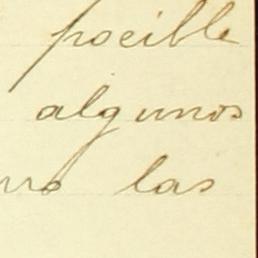 pocible
algunos
las